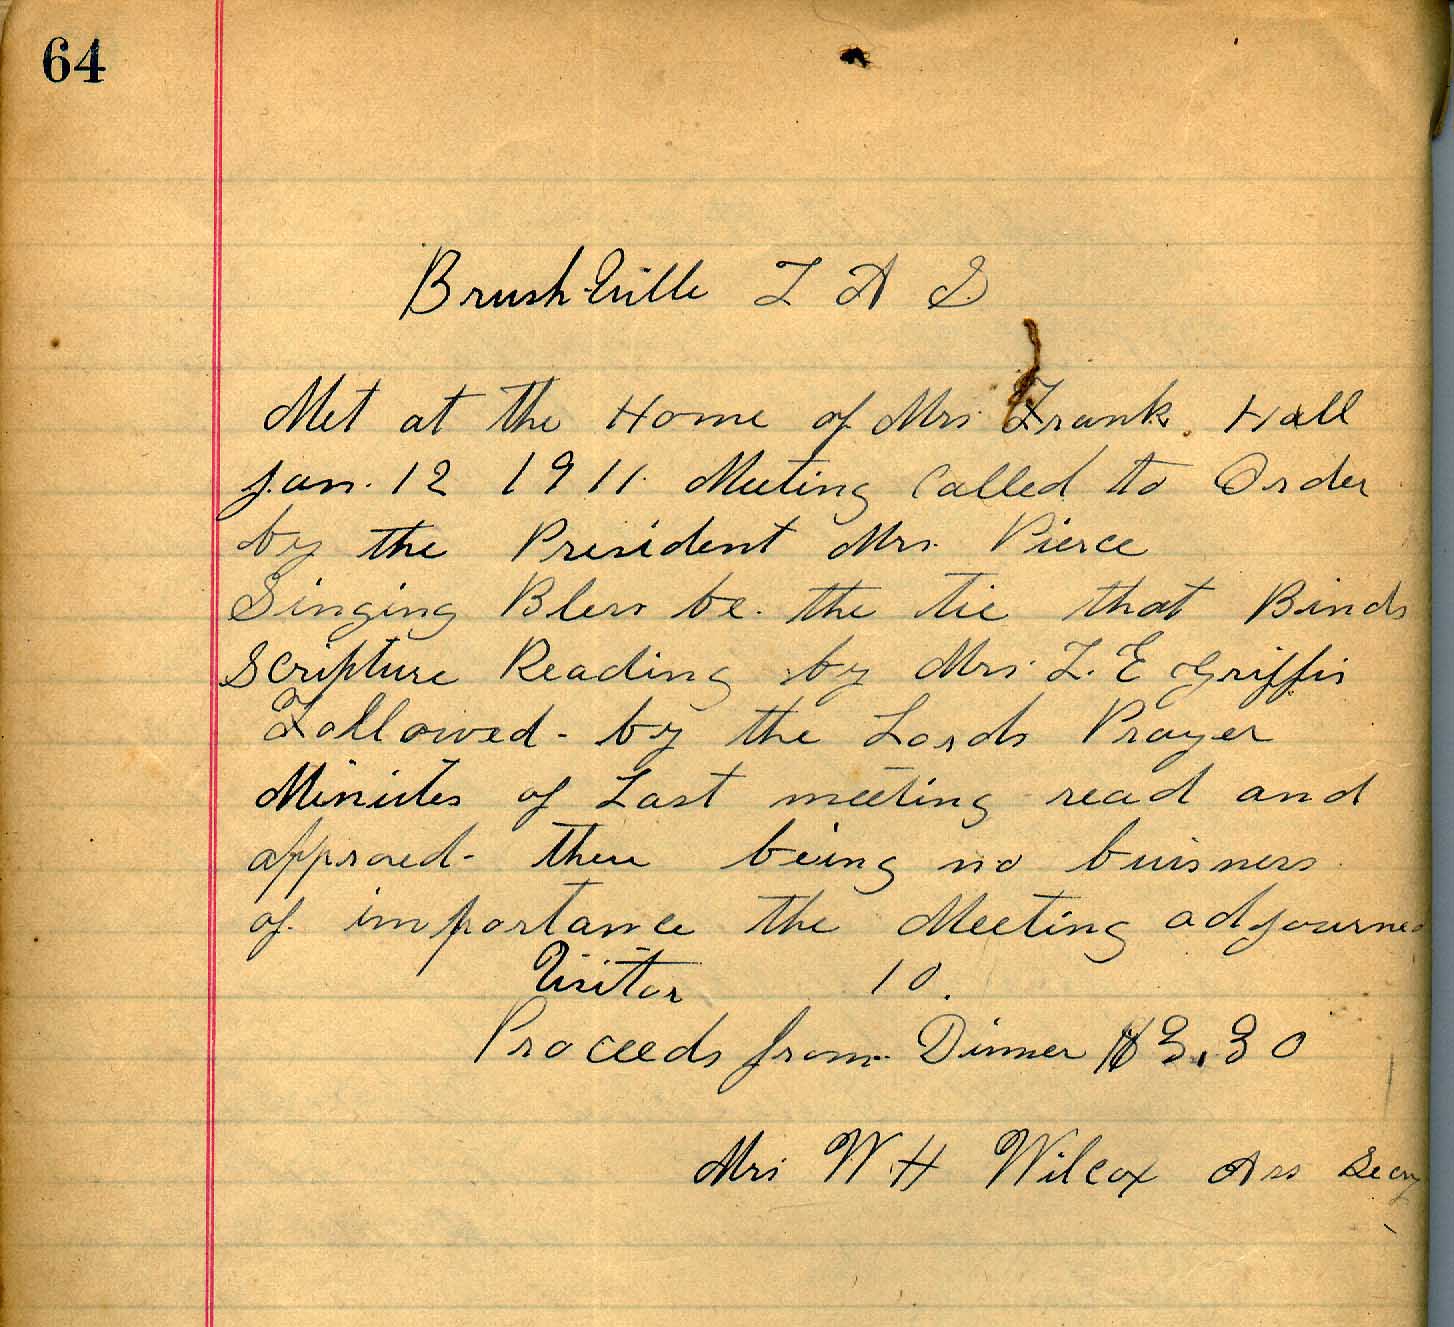 64
Brushville L A S
Met at the Home of Mrs Frank Hall
Jan. 12 1911. Meeting Called to Order
by the President Mrs. Pierce
Singing Bless be. the tie that Binds
Scripture Reading by Mrs. L. E Griffis
Followed - by the Lords Prayer
Minutes of Last meeting read and
approed - there being no buisness
of importance the Meeting adjourned
Visitor 10.
Proceeds from Dinner $3.30
Mrs W. H Wilcox Ass Secy